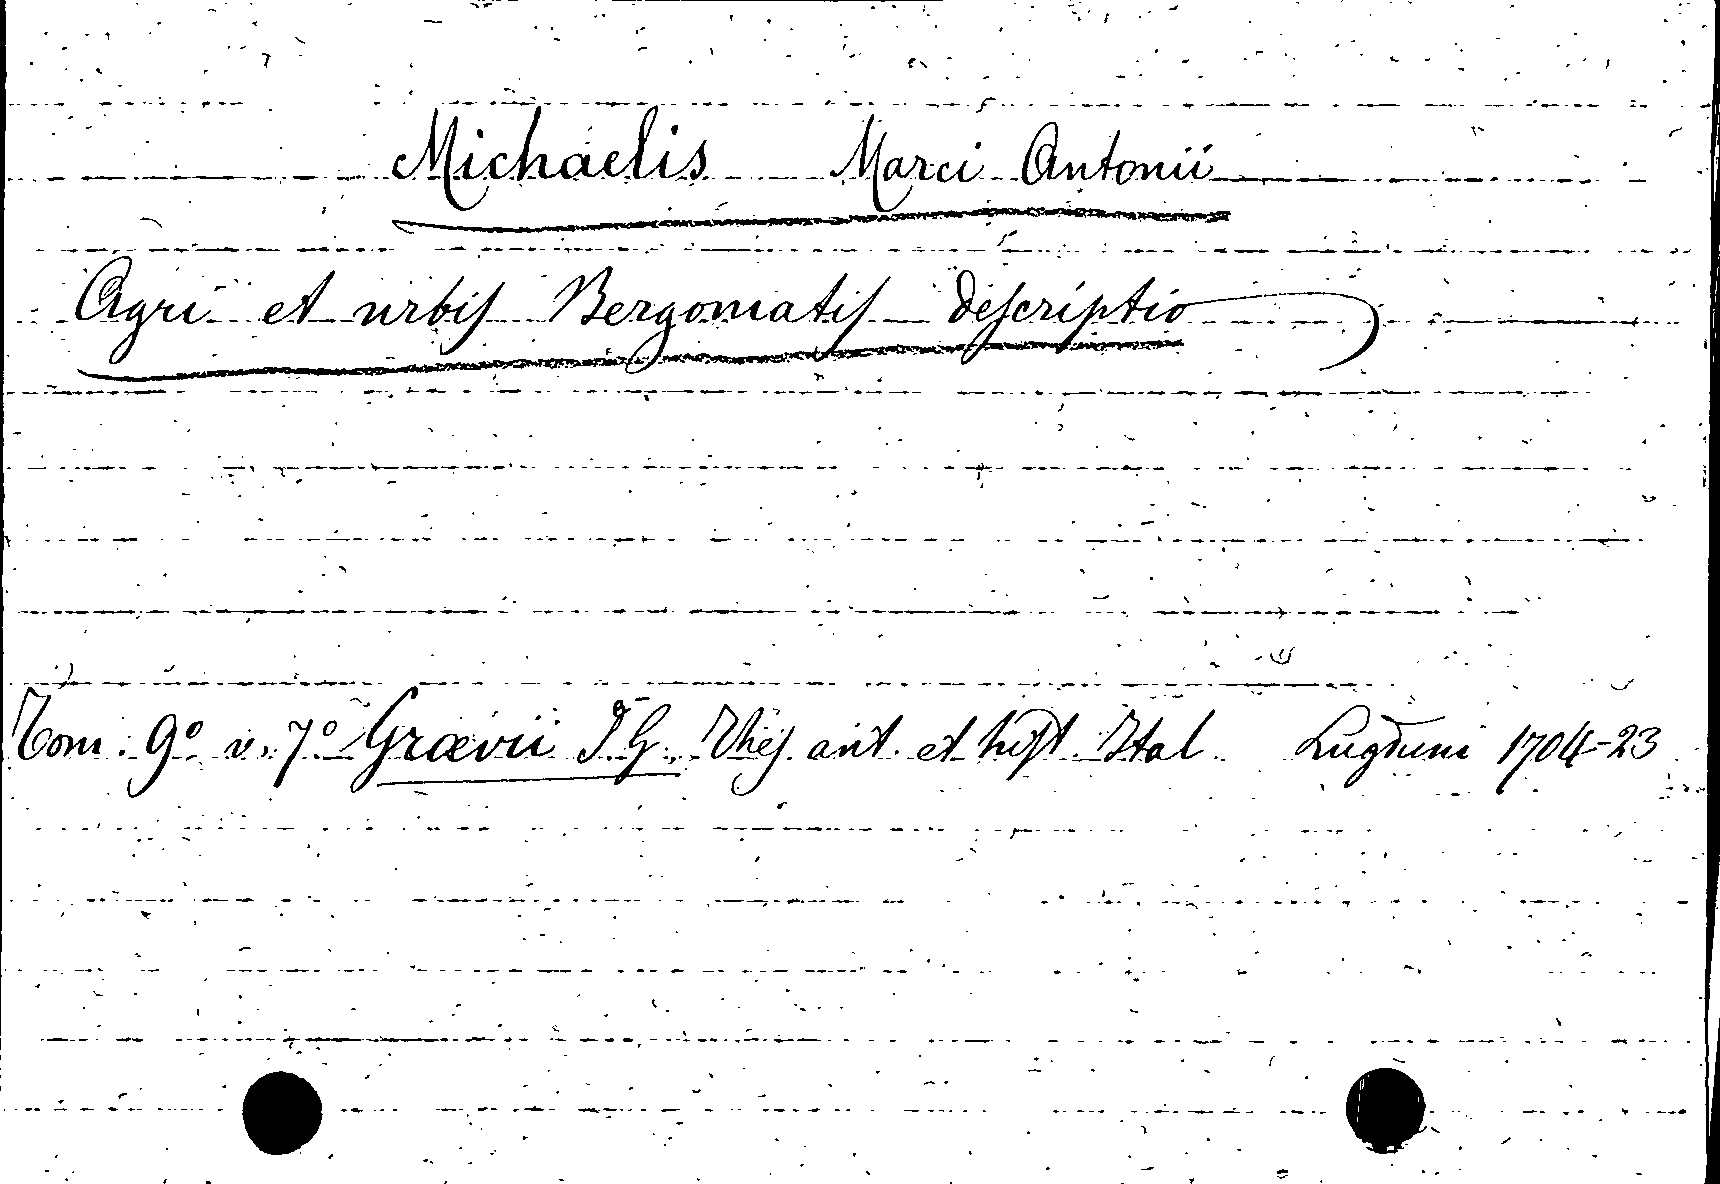 Michaelis Marci Antonii
Agri et urbiſ Bergomatiſ deſcriptio
Tom. 9º v. 7º Grævii J G. Theſ. ant. et hiſt Ital Lugduni 1704-23